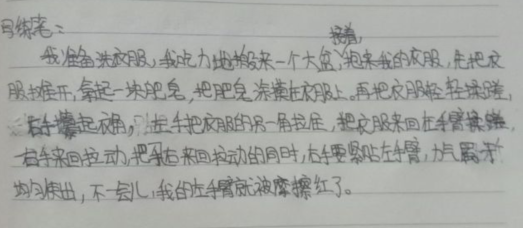 日练笔：
我准备洗衣服，我吃力地端来一个大盆，接着，抱来我的衣服，先把衣
服摊开，拿起一块肥皂，把肥皂涂抹在衣服上。再把衣服轻轻揉搓，
右手攥起衣角，左手把衣服的另一角拉住，把衣服来回在手臂揉搓，
右手来回拉动，把手右来回拉动的同时，右手要紧贴左手臂，力气要
均匀使出，不一会儿，我的左手臂就被摩擦红了。